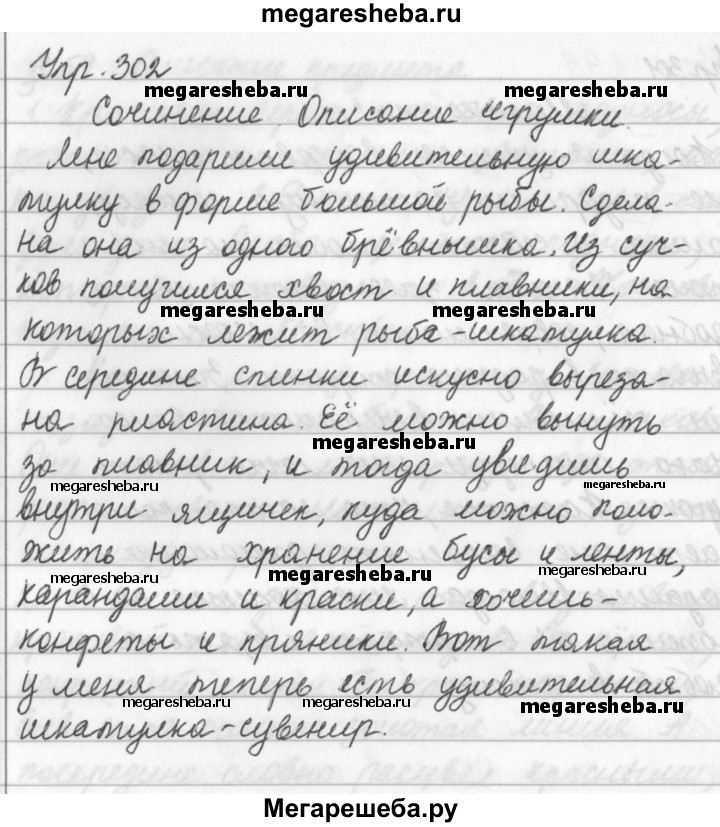 megaresheba.ru
Упр. 302
megaresheba.ru megaresheba.ru
Сочинение. Описание игрушки.
Мне подарили удивительную шка-
тулку в форме большой рыбы. Сдела-
на она из одного брёвнышка. Из суч-
ков получился хвост и плавники, на
megaresheba.ru megaresheba.ru
которых лежит рыба-шкатулка.
В середине спинки искусно выреза-
на пластина. Её можно вынуть
megaresheba.ru
за плавник, и тогда увидишь
megaresheba.ru megaresheba.ru
внутри ящичек, куда можно поло-
жить на хранение бусы и ленты,
megaresheba.ru megaresheba.ru megaresheba.ru
карандаши и краски, а хочешь-
конфеты и пряники. Вот такая
у меня теперь есть удивительная
megaresheba.ru megaresheba.ru megaresheba.ru
шкатулка-сувенир.
Мегарешеба.ру